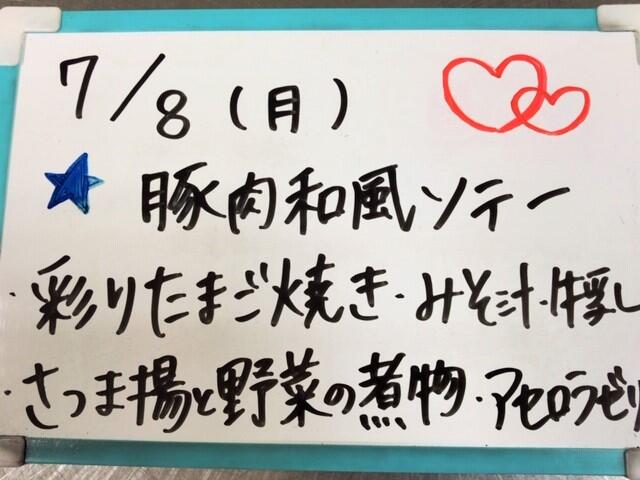 7/8(月)
豚肉和風ソテー
・彩りたまご焼き・みそ汁・牛乳
・さつま揚と野菜の煮物・アセロラゼリ